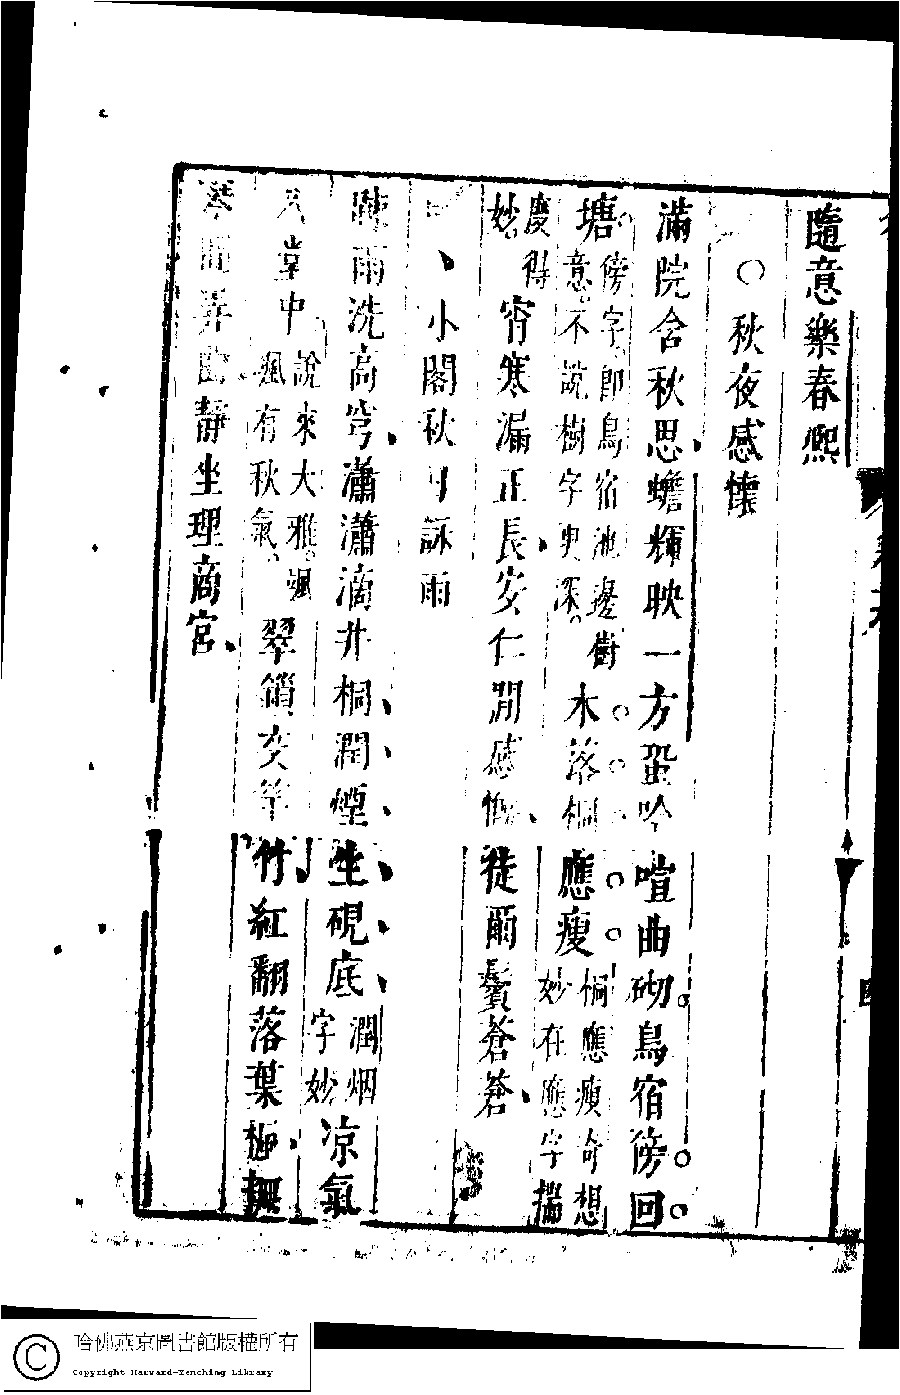 隨意樂春熙
○秋夜感懷
滿院含秋思蟾輝映一方蛩吟喧曲砌鳥宿傍回
塘傍字即鳥宿池邊樹意不說樹字更深木落桐應瘦桐應瘦奇想妙在應字揣
度得妙宵寒漏正長安仁閒感慨徒爾鬢蒼蒼
小閣秋日詠雨
疎雨洗高穹瀟瀟滴井桐潤煙生硯底潤烟字妙凉氣
入堂中說來大雅颯颯有秋氣翠鎖交竿竹紅翻落葉楓無
琴閒弄曲靜坐理商宮
哈佛燕京圖書館版權所有
Copyright Harvard-Yenching Library